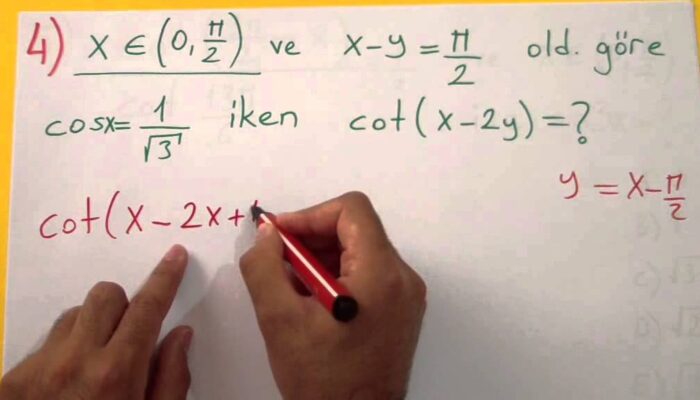 4) x ∈ (0, π/2) ve x-y = π/2 old. göre
cosx= 1/√3 iken cot(x-2y)=?
y = x-π/2
cot(x-2x+